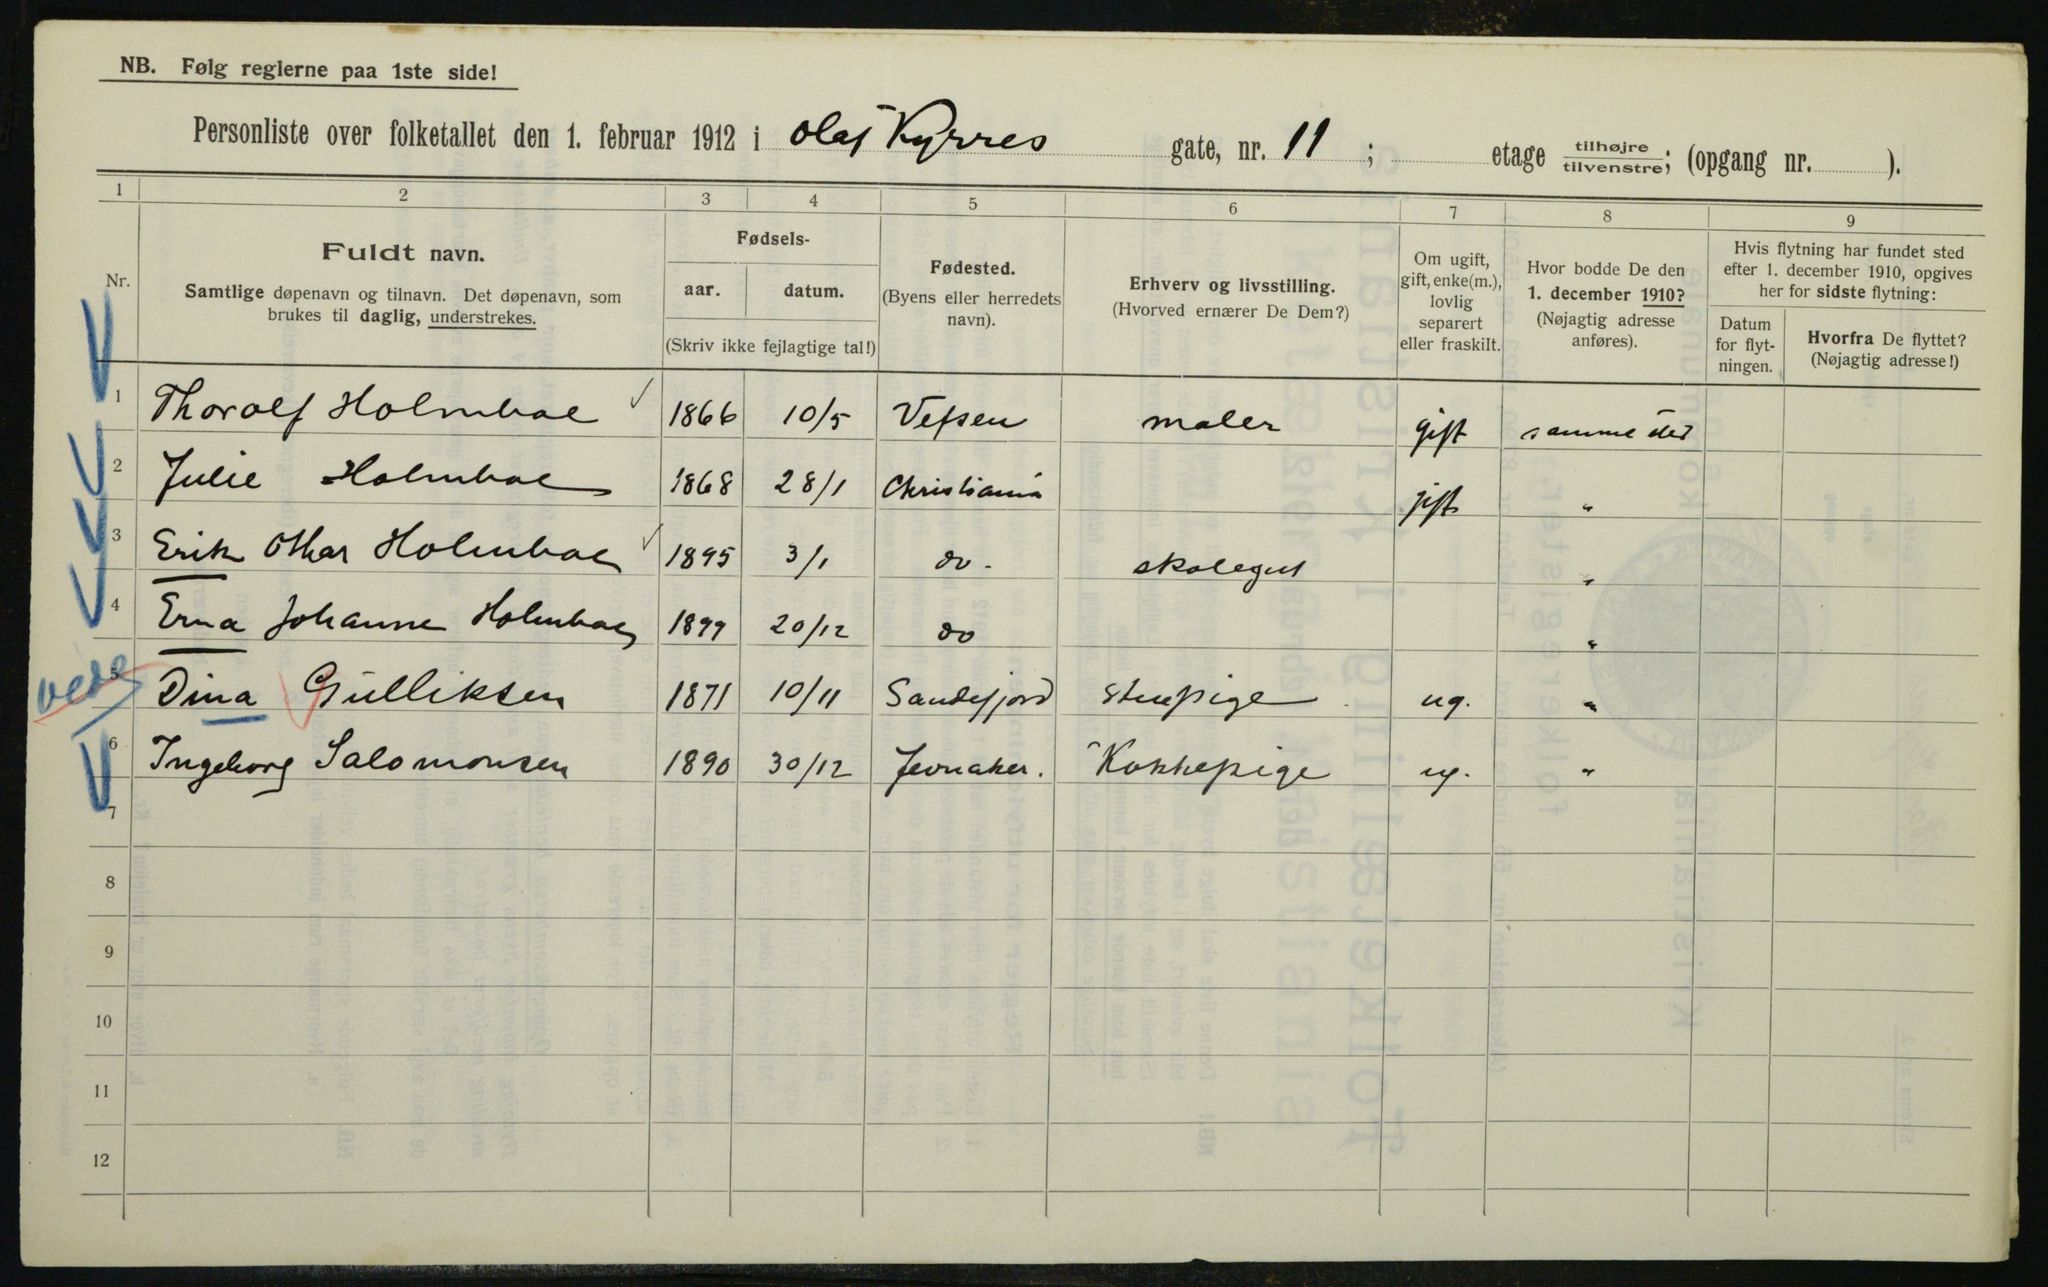 NB. Følg reglerne paa 1ste side!
Personliste over folketallet den 1. februar 1912 i Olaf Kyrres gate, nr. 11 ; etage tilhøjre/tilvenstre; (opgang nr. ).
1 2 3 4 5 6 7 8 9
Nr.
Fuldt navn.
Samtlige døpenavn og tilnavn. Det døpenavn, som
brukes til daglig, understrekes.
Fødsels-
aar. datum.
(Skriv ikke fejlagtige tal!)
Fødested.
(Byens eller herredets
navn).
Erhverv og livsstilling.
(Hvorved ernærer De Dem?)
Om ugift,
gift, enke(m.),
lovlig
separert
eller fraskilt.
Hvor bodde De den
1. december 1910?
(Nøjagtig adresse
anføres).
Hvis flytning har fundet sted
efter 1. december 1910, opgives
her for sidste flytning:
Datum
for flyt-
ningen.
Hvorfra De flyttet?
(Nøjagtig adresse!)
1 Thorolf Holmboe 1866 10/5 Vefsen maler gift samme sted
2 Julie Holmboe 1868 28/1 Christiania gift "
3 Erik Othar Holmboe 1895 3/1 do. skolegut "
4 Erna Johanne Holmboe 1899 20/12 do "
5 Dina Gulliksen 1871 10/11 Sandefjord Stuepige ug. "
6 Ingeborg Salomonsen 1890 30/12 Jevnaker. Kokkepige ug. "
7
8
9
10
11
12